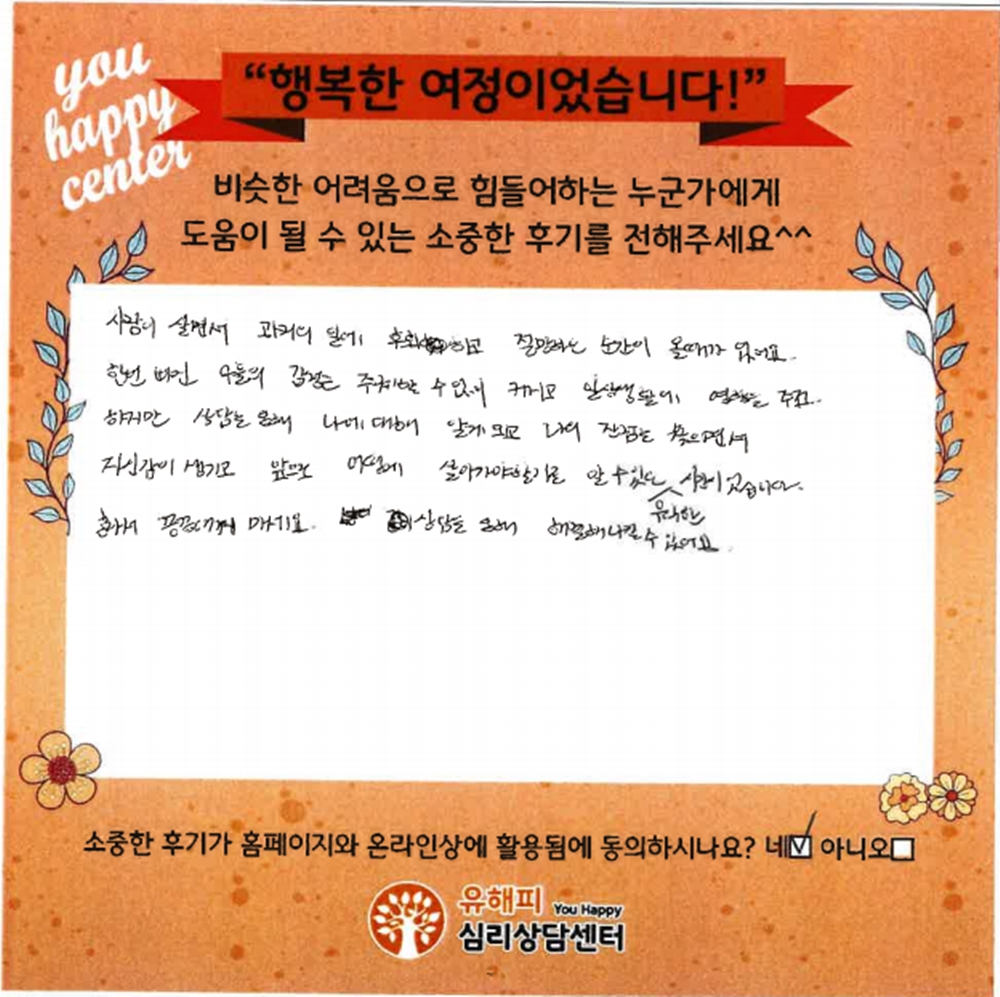 you
happy
center
“행복한 여정이었습니다!”
비슷한 어려움으로 힘들어하는 누군가에게
도움이 될 수 있는 소중한 후기를 전해주세요^^
사람이 살면서 과거의 일에 후회하고 절망하는 순간이 올때가 있어요.
한번 빠진 우울의 감정은 주체할 수 없이 커지고 일상생활에 영향을 주죠.
하지만 상담을 통해 나에 대해 알게 되고 나의 장점을 찾으면서
자신감이 생기고 앞으로 어떻게 살아가야할지를 알 수 있는 유익한 시간이었습니다.
혼자서 끙끙대지 마시고 상담을 통해 해결해나갈 수 있어요.
소중한 후기가 홈페이지와 온라인상에 활용됨에 동의하시나요? 네☑ 아니오☐
유해피 You Happy
심리상담센터